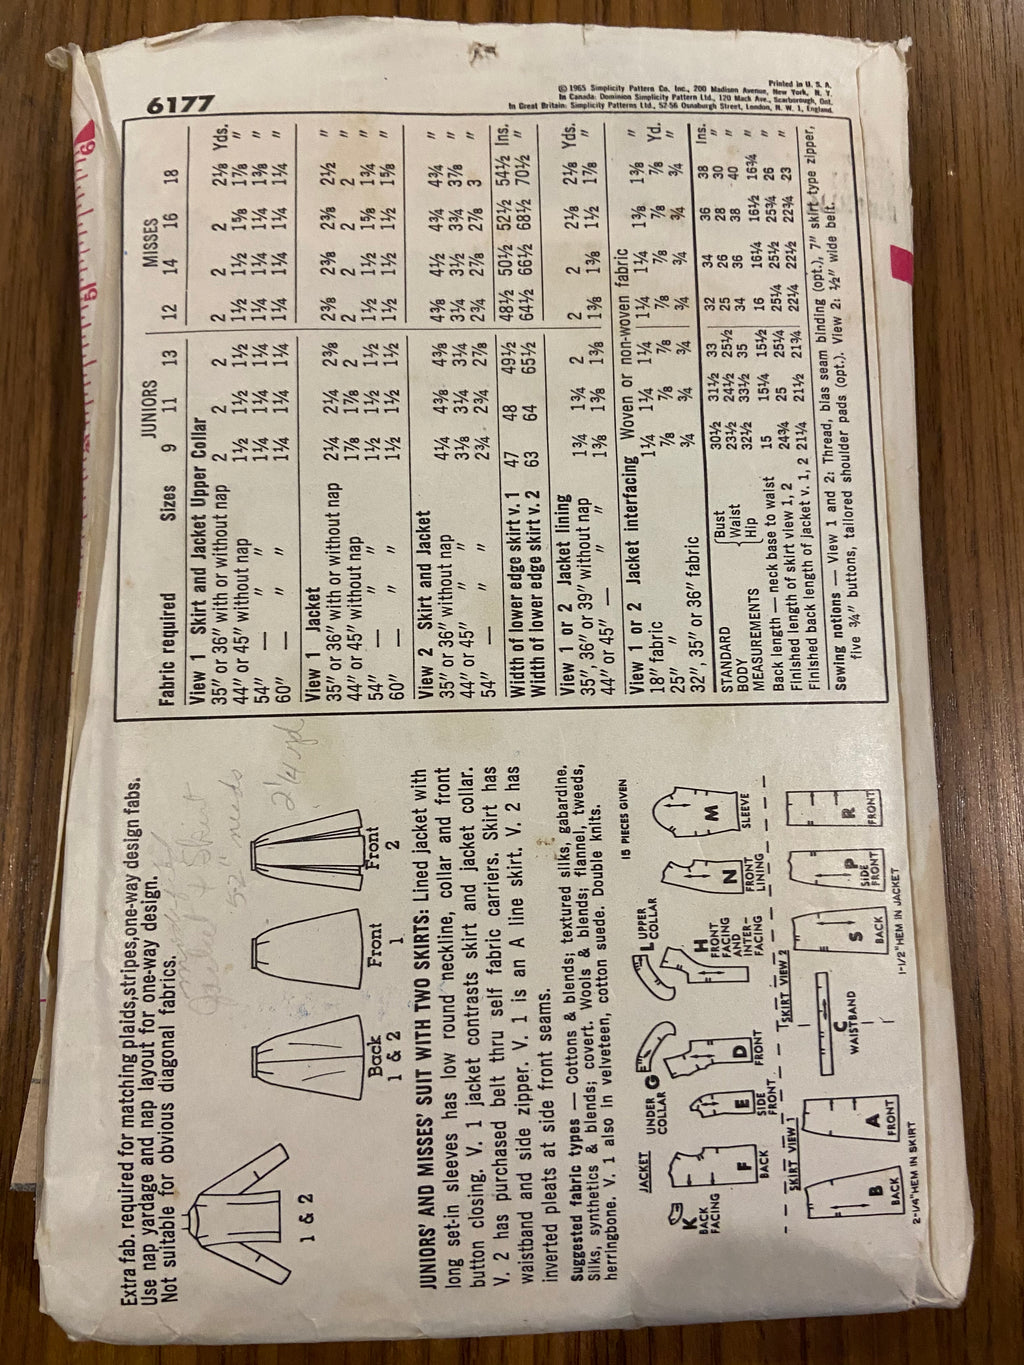 6177
Printed in U. S. A.
© 1965 Simplicity Pattern Co., Inc., 200 Madison Avenue, New York, N. Y.
In Canada: Dominion Simplicity Pattern Ltd., 120 Mack Ave., Scarborough, Ont.
In Great Britain: Simplicity Patterns Ltd., 52-56 Osnaburgh Street, London, N. W. 1, England
Extra fab. required for matching plaids, stripes, one-way design fabs.
Use nap yardage and nap layout for one-way design.
Not suitable for obvious diagonal fabrics.
52" needs
2 1/4 yd
1 & 2
Back
1 & 2
Front
1
Front
2
JUNIORS' AND MISSES' SUIT WITH TWO SKIRTS: Lined jacket with
long set-in sleeves has low round neckline, collar and front
button closing. V. 1 jacket contrasts skirt and jacket collar.
V. 2 has purchased belt thru self fabric carriers. Skirt has
waistband and side zipper. V. 1 is an A line skirt. V. 2 has
inverted pleats at side front seams.
Suggested fabric types — Cottons & blends; textured silks, gabardine.
Silks, synthetics & blends; covert. Wools & blends; flannel, tweeds,
herringbone. V. 1 also in velveteen, cotton suede. Double knits.
15 PIECES GIVEN
JACKET
K BACK FACING
F BACK
UNDER COLLAR G
E SIDE FRONT
D FRONT
L UPPER COLLAR
H FRONT FACING AND INTER-FACING
N FRONT LINING
M SLEEVE
SKIRT VIEW 1
B BACK
A FRONT
C WAISTBAND
SKIRT VIEW 2
S BACK
P SIDE FRONT
R FRONT
2-1/4" HEM IN SKIRT
1-1/2" HEM IN JACKET
JUNIORS MISSES
Fabric required Sizes 9 11 13 12 14 16 18
View 1 Skirt and Jacket Upper Collar
35" or 36" with or without nap 2 2 2 2 2 2 2⅛ Yds.
44" or 45" without nap 1½ 1½ 1½ 1½ 1½ 1⅝ 1⅞ "
54" — " " 1¼ 1¼ 1¼ 1¼ 1¼ 1¼ 1⅜ "
60" — " " 1¼ 1¼ 1¼ 1¼ 1¼ 1¼ 1¼ "
View 1 Jacket
35" or 36" with or without nap 2¼ 2¼ 2⅜ 2⅜ 2⅜ 2⅜ 2½ "
44" or 45" without nap 1⅞ 1⅞ 2 2 2 2 2 "
54" — " " 1½ 1½ 1½ 1½ 1½ 1⅝ 1¾ "
60" — " " 1½ 1½ 1½ 1½ 1½ 1½ 1⅝ "
View 2 Skirt and Jacket
35" or 36" without nap 4¼ 4⅜ 4⅜ 4⅜ 4½ 4¾ 4¾ "
44" or 45" " 3⅛ 3¼ 3¼ 3¼ 3½ 3¾ 3⅞ "
54" — " 2¾ 2¾ 2⅞ 2¾ 2⅞ 2⅞ 3 "
Width of lower edge skirt v. 1 47 48 49½ 48½ 50½ 52½ 54½ Ins.
Width of lower edge skirt v. 2 63 64 65½ 64½ 66½ 68½ 70½ "
View 1 or 2 Jacket lining
35", 36" or 39" without nap 1¾ 1¾ 2 2 2 2⅛ 2⅛ Yds.
44" or 45" — " 1⅜ 1⅜ 1⅜ 1⅜ 1⅜ 1½ 1⅞ "
View 1 or 2 Jacket interfacing Woven or non-woven fabric
18" fabric 1¼ 1¼ 1¼ 1¼ 1¼ 1⅜ 1⅜ Yd.
25" " ⅞ ⅞ ⅞ ⅞ ⅞ ⅞ ⅞ "
32", 35" or 36" fabric ¾ ¾ ¾ ¾ ¾ ¾ ¾ "
STANDARD BODY MEASUREMENTS
Bust 30½ 31½ 33 32 34 36 38 Ins.
Waist 23½ 24½ 25½ 25 26 28 30 "
Hip 32½ 33½ 35 34 36 38 40 "
Back length — neck base to waist 15 15¼ 15½ 16 16¼ 16½ 16¾ "
Finished length of skirt view 1, 2 24¾ 25 25¼ 25¼ 25½ 25¾ 26 "
Finished back length of jacket v. 1, 2 21¼ 21½ 21¾ 22¼ 22½ 22¾ 23 "
Sewing notions — View 1 and 2: Thread, bias seam binding (opt.), 7" skirt type zipper,
five ¾" buttons, tailored shoulder pads (opt.). View 2: ½" wide belt.